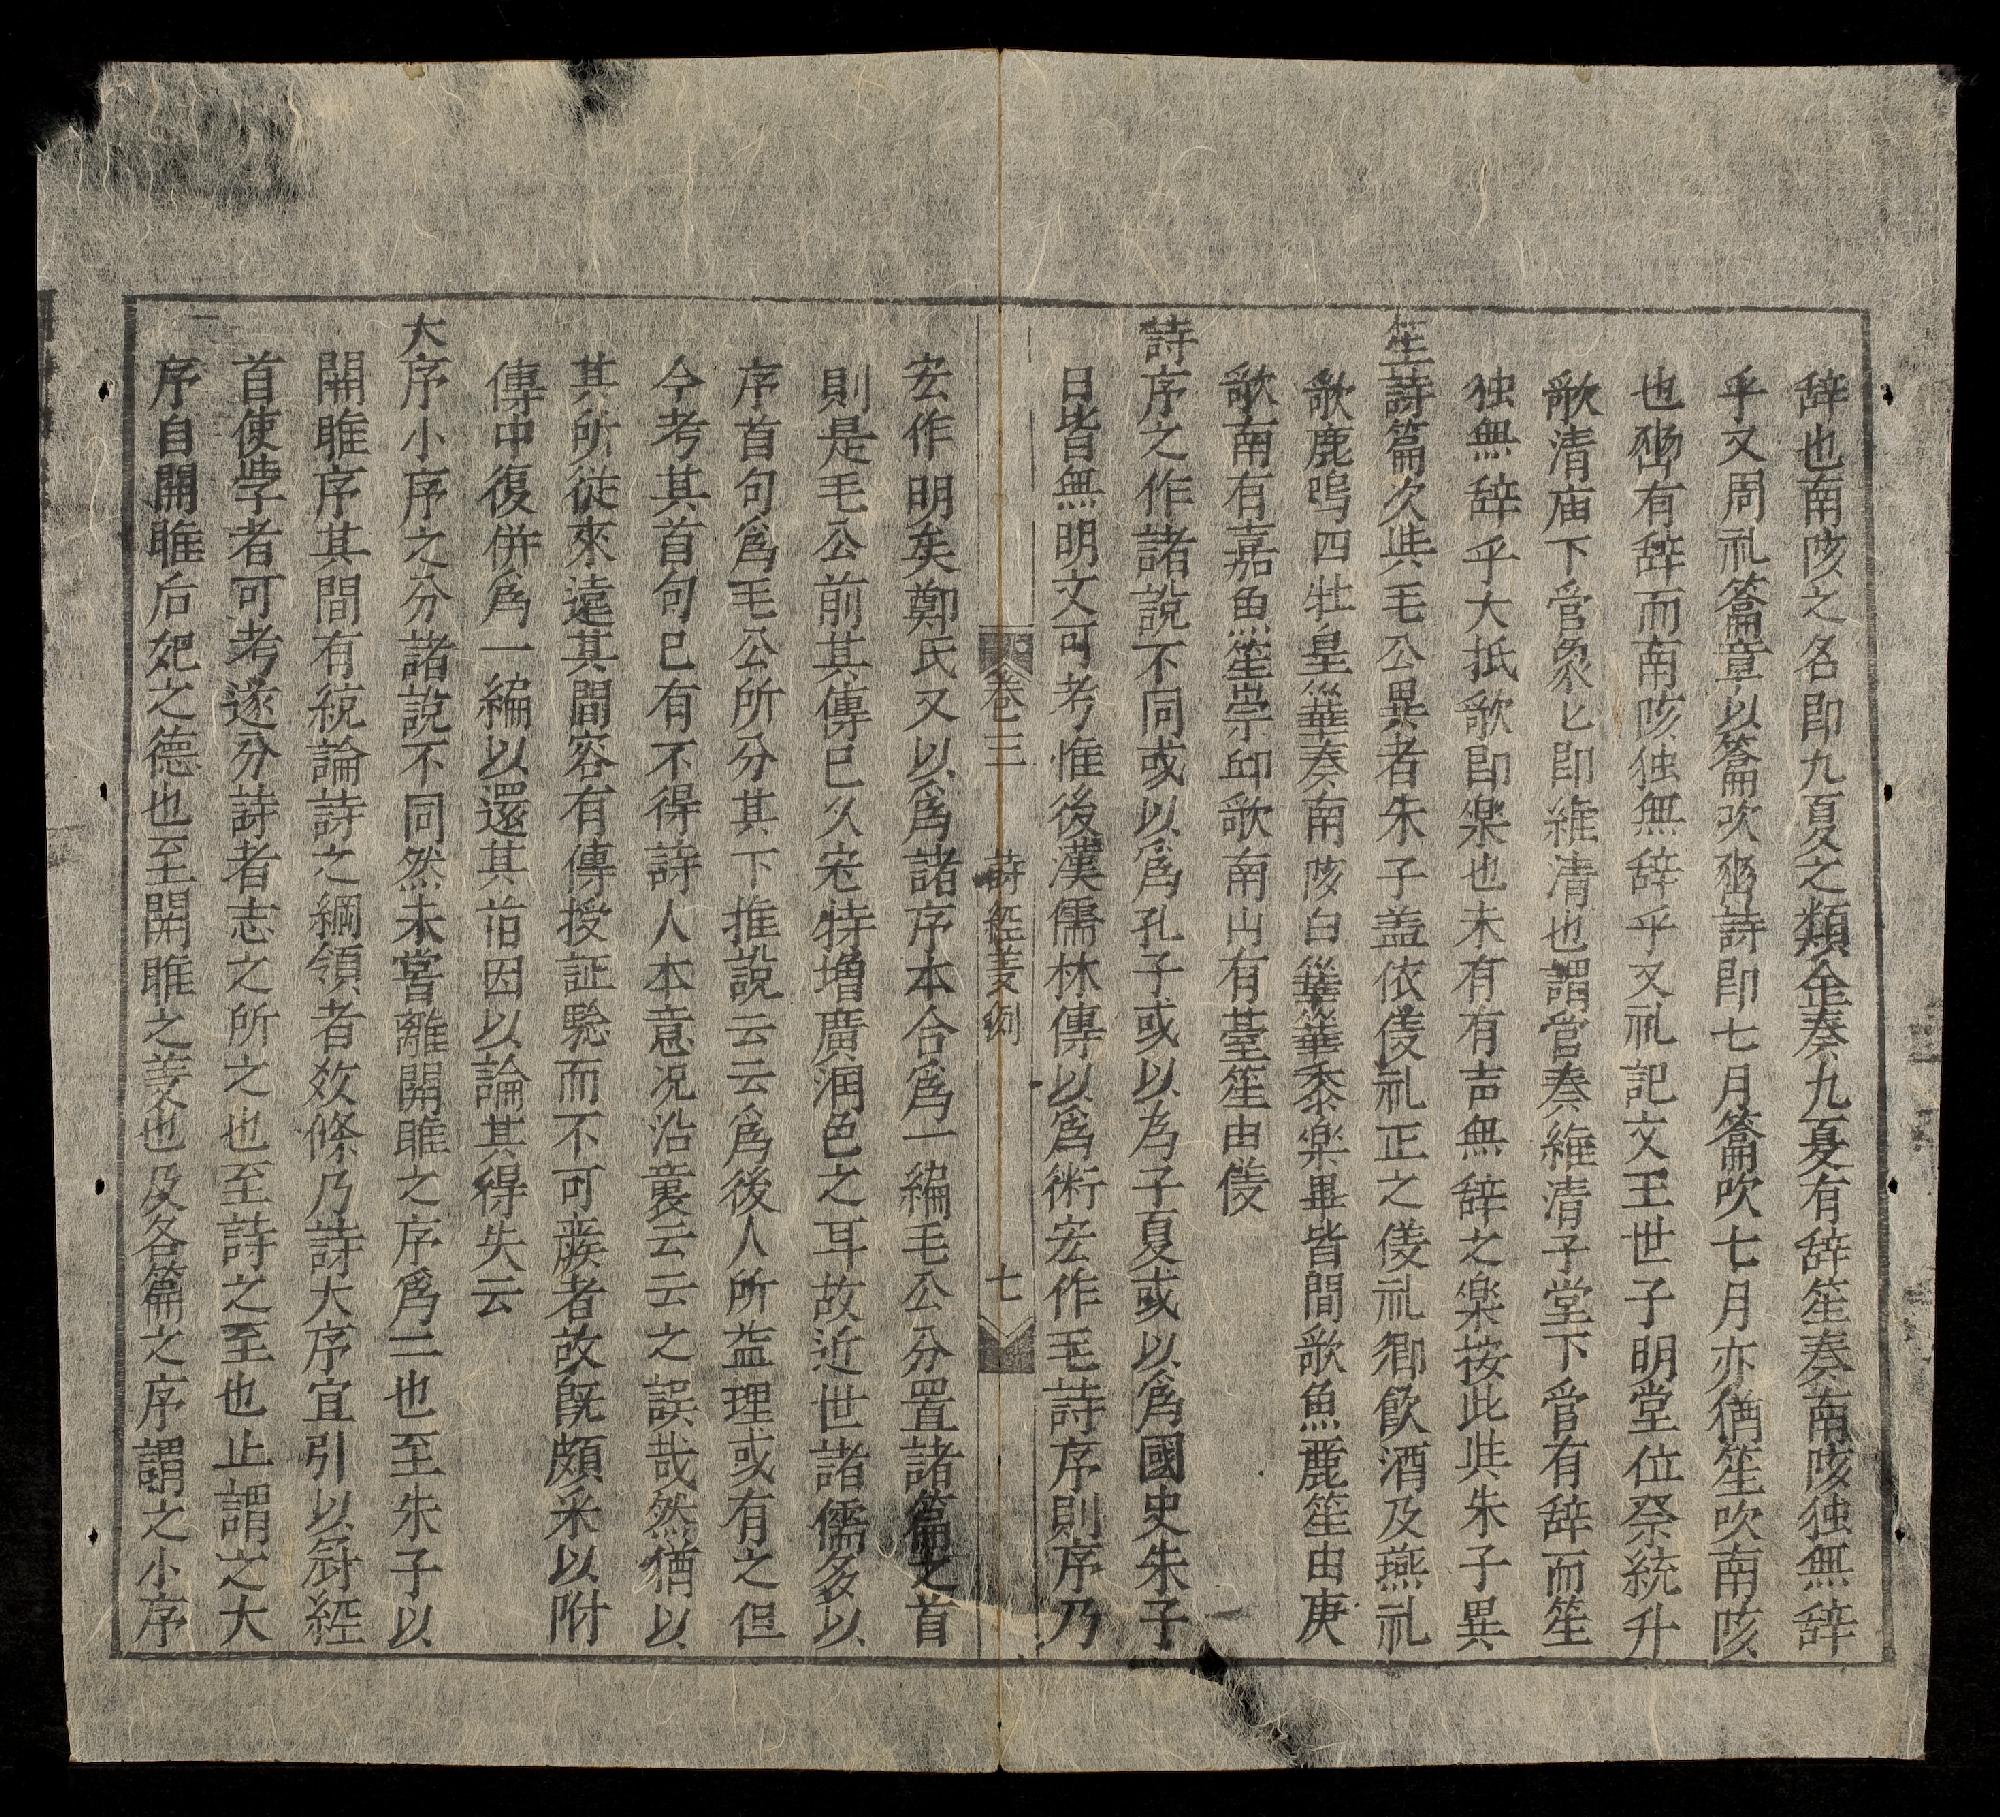 辞也南陔之名即九夏之類金奏九夏有辞笙奏南陔独無辞
乎又周礼籥章以籥吹豳詩即七月籥吹七月亦猶笙吹南陔
也豳有辞而南陔独無辞乎又礼記文王世子明堂位祭統升
歌清庙下管象匕即維清也謂管奏維清子堂下管有辞而笙
独無辞乎大抵歌即楽也未有有声無辞之楽按此与朱子異
笙詩篇次与毛公異者朱子盖依仪礼正之仪礼鄉飲酒及燕礼
歌鹿鳴四牡皇華奏南陔白華華黍楽畢皆間歌魚麗笙由庚
歌南有嘉魚笙崇邱歌南山有薹笙由仪
詩序之作諸說不同或以爲孔子或以為子夏或以爲國史朱子
曰皆無明文可考惟後漢儒林傳以爲衛宏作毛詩序則序乃
卷三 詩經義例 七
宏作明矣鄭氏又以爲諸序本合爲一編毛公分置諸篇之首
則是毛公前其傳已久宏特增廣润色之耳故近世諸儒多以
序首句爲毛公所分其下推說云云爲後人所益理或有之但
今考其首句已有不得詩人本意况沿襲云云之誤哉然猶以
其所従來遠其間容有傳授証驗而不可廢者故既頗采以附
傳中復併爲一編以還其旧因以論其得失云
大序小序之分諸說不同然未嘗離開雎之序爲二也至朱子以
開雎序其間有統論詩之綱領者数條乃詩大序宜引以冠經
首使学者可考遂分詩者志之所之也至詩之至也止謂之大
序自開雎后妃之德也至開雎之义也及各篇之序謂之小序